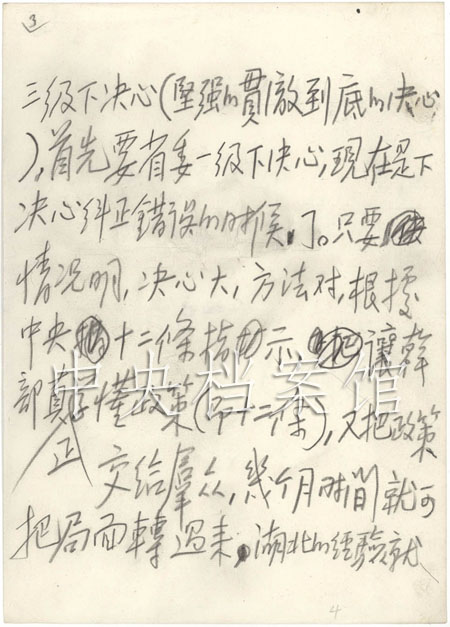 3
三级下决心(坚强的貫澈到底的决心
),首先要省委一级下决心,現在是下
决心纠正错误的时候了。只要
情况明,决心大,方法对,根據
中央十二條指示,讓幹
部真正懂政策(即十二條),又把政策
交给羣众,幾个月时间就可
把局面轉過来,湖北的经驗就
中央档案馆
4